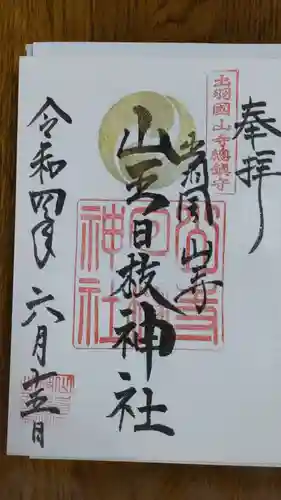 奉拝
出羽國山寺總鎮守
山寺
山王日枝神社
令和四年六月十五日